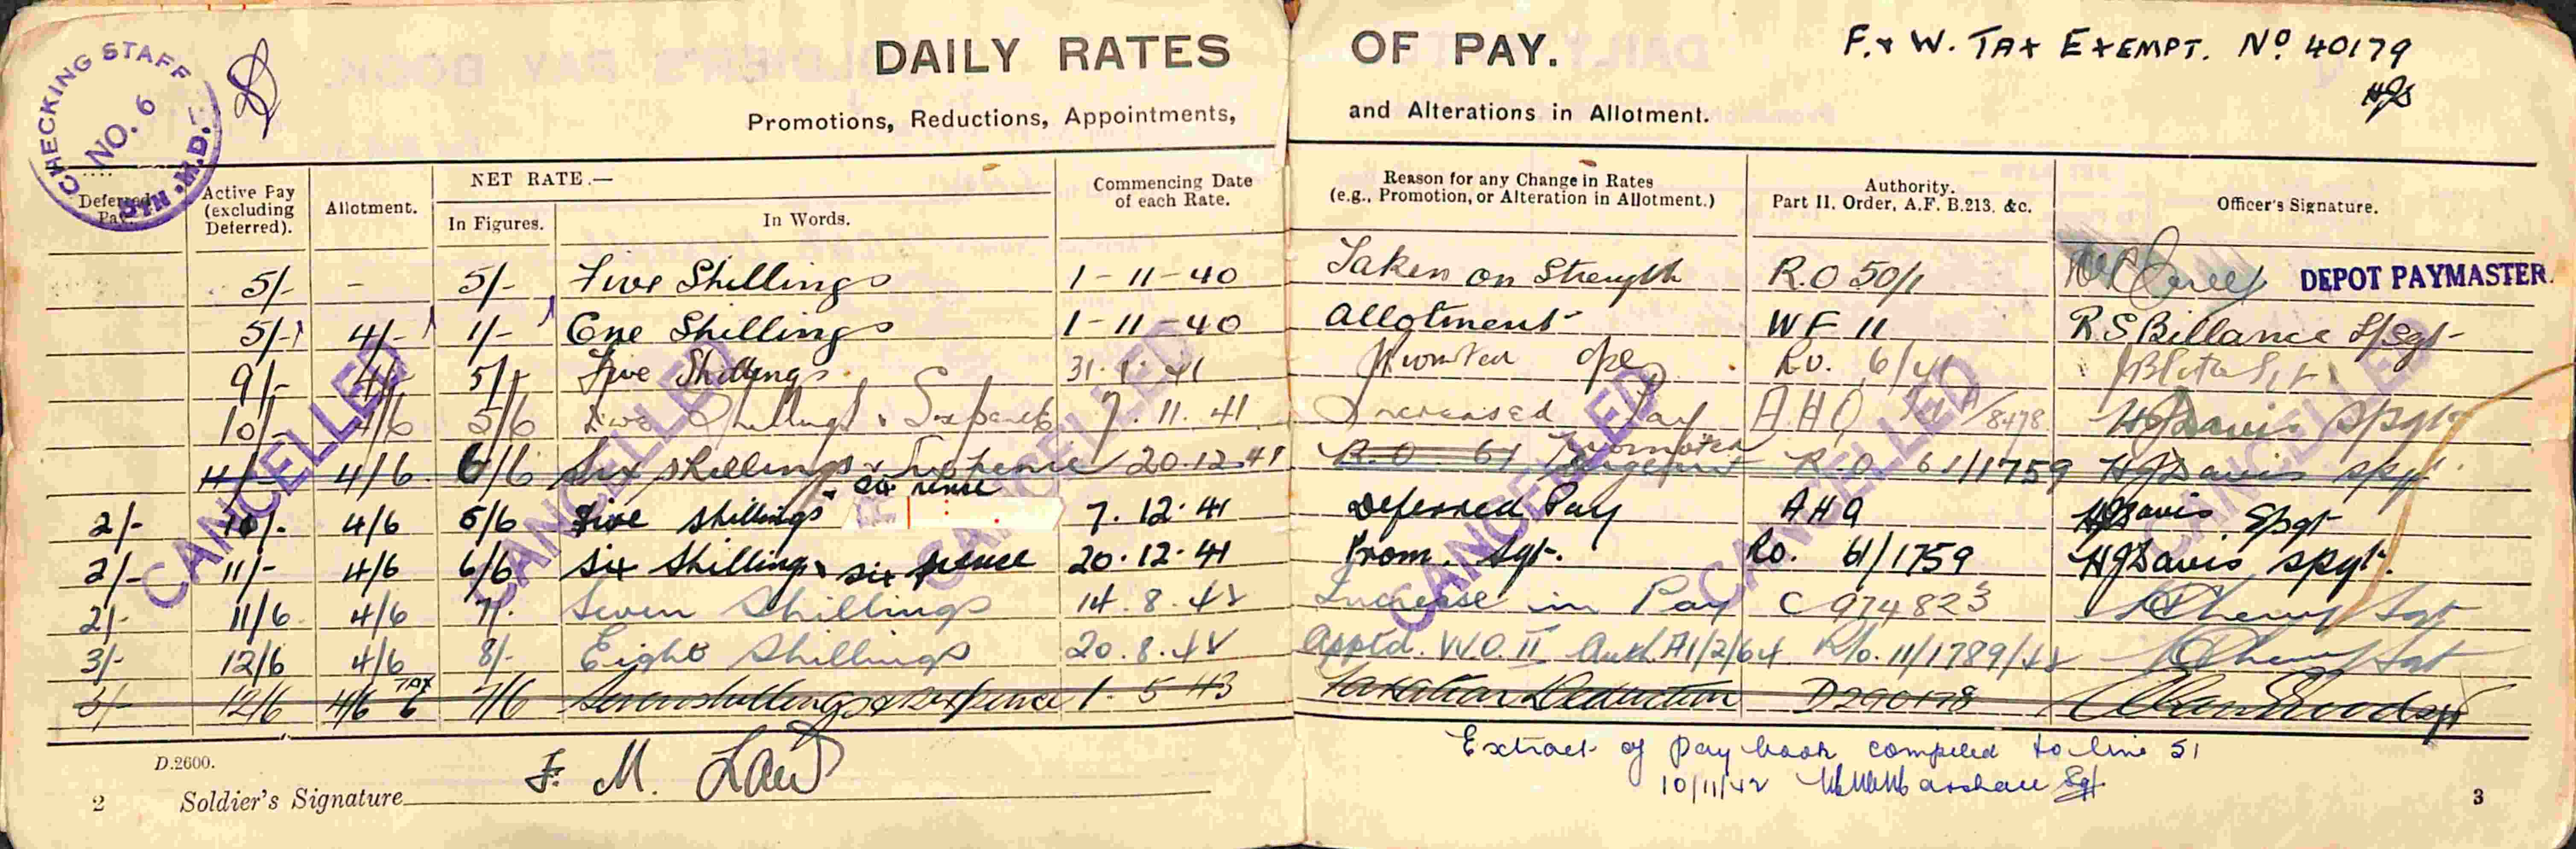 CHECKING STAFF
NO. 6
DAILY RATES OF PAY.
F. & W. TAX EXEMPT. No 40179
HJD
Promotions, Reductions, Appointments, and Alterations in Allotment.
Deferred Pay. Active Pay (excluding Deferred). Allotment. NET RATE.— In Figures. In Words. Commencing Date of each Rate. Reason for any Change in Rates (e.g., Promotion, or Alteration in Allotment.) Authority. Part II, Order, A.F. B.213, &c. Officer's Signature.
5/- - 5/- Five Shillings 1-11-40 Taken on Strength R.O 50/1 DEPOT PAYMASTER.
5/- 4/- 1/- One Shillings 1-11-40 Allotment WF 11 R S Billance S/Sgt
9/- 5/- Five Shillings 31.1.41 Promoted Cpl R.O. 6/41
10/- 4/6 5/6 Five Shillings & Sixpence 7.11.41 Increased Pay AHQ /8478 HJDavis S/Sgt
11/- 4/6 6/6 Six Shillings & Sixpence 20.12.41 R.O 61 Promoted Sergeant R.O. 61/1759 HJDavis S/Sgt
2/- 10/- 4/6 5/6 Five Shillings & six pence 7.12.41 Deferred Pay AHQ HJDavis S/Sgt
2/- 11/- 4/6 6/6 Six Shillings & six pence 20.12.41 Prom. Sgt. Ro. 61/1759 HJDavis S/Sgt.
2/- 11/6 4/6 7/- Seven Shillings 14.8.42 Increase in Pay C 974823 Sgt
3/- 12/6 4/6 8/- Eight Shillings 20.8.42 Apptd. W.O. II Auth. A1/2/64 R/o. 11/1789/42 Sgt
3/- 12/6 4/6 TAX 6 7/6 Seven shillings & sixpence 1.5.43 Taxation Deduction D290178
CANCELLED
CANCELLED
CANCELLED
CANCELLED
CANCELLED
CANCELLED
D.2600.
2 Soldier's Signature F. M. Law
Extract of pay book compiled to line 51
10/11/42 Marshall Sgt
3